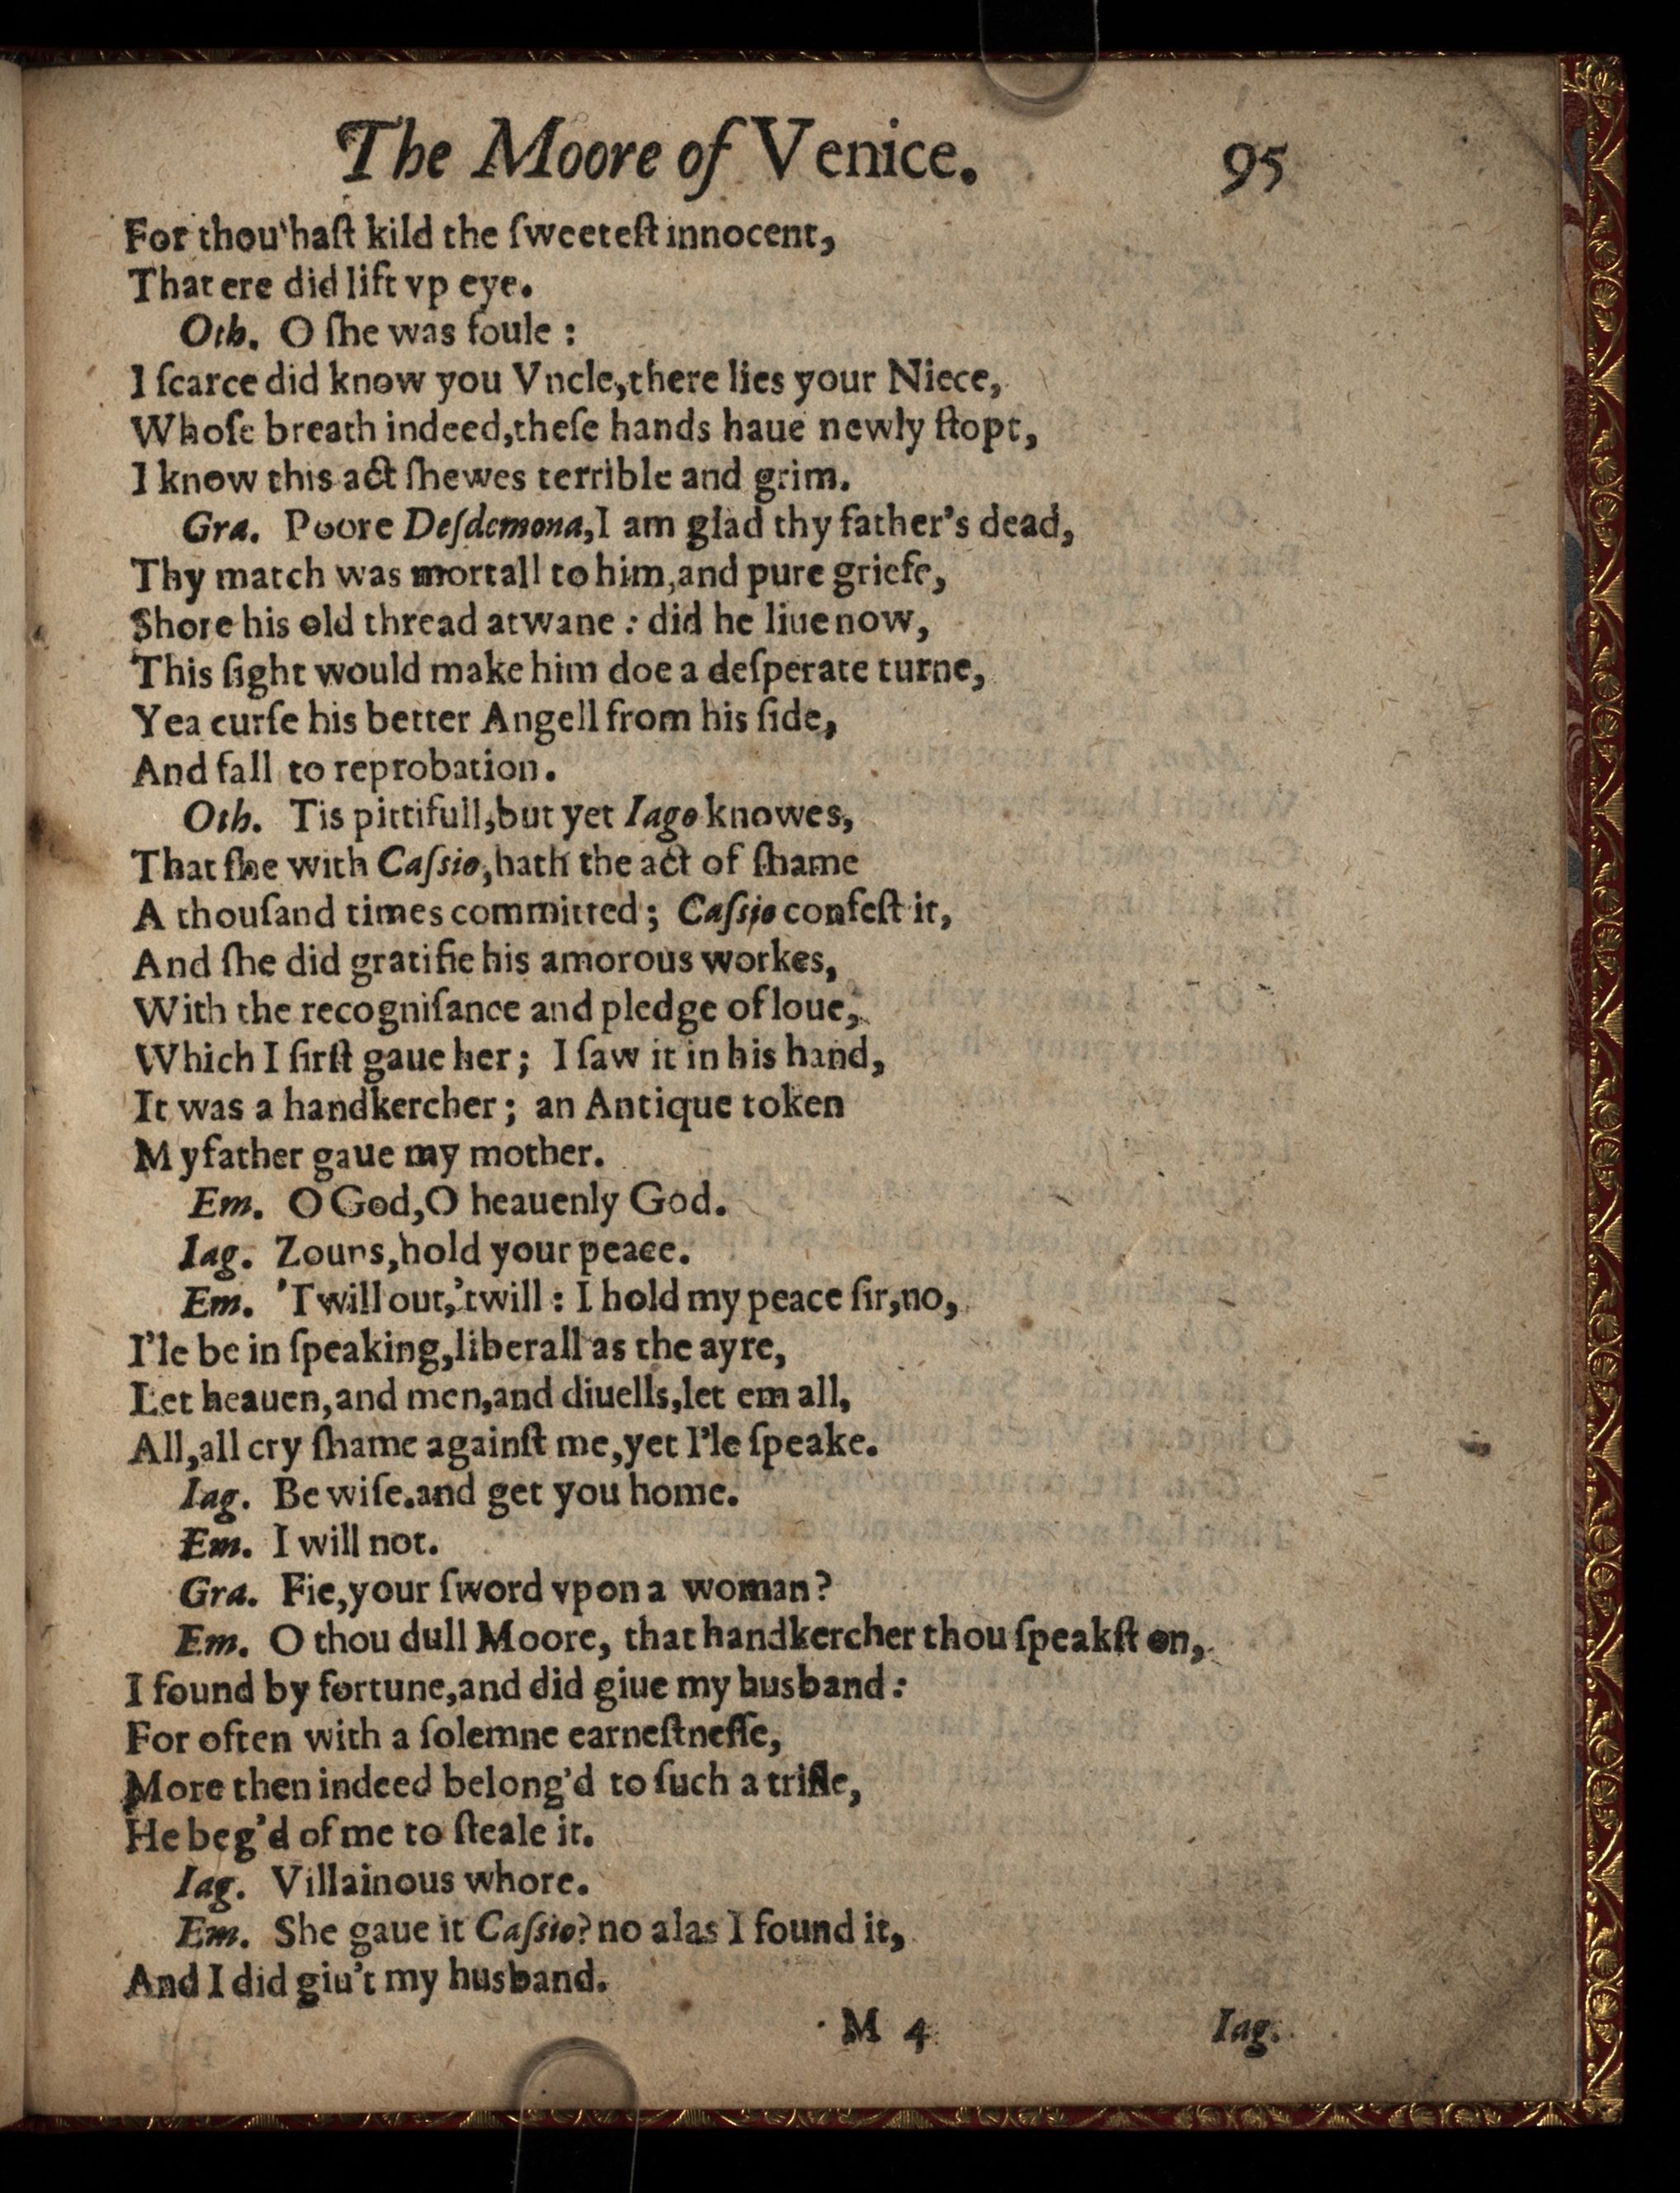 The Moore of Venice. 95
For thou'haſt kild the ſweeteſt innocent,
That ere did lift vp eye.
Oth. O ſhe was foule :
I ſcarce did know you Vncle,there lies your Niece,
Whoſe breath indeed,theſe hands haue newly ſtopt,
I know this act ſhewes terrible and grim.
Gra. Poore Deſdemona,I am glad thy father's dead,
Thy match was mortall to him,and pure griefe,
Shore his old thread atwane : did he liue now,
This ſight would make him doe a deſperate turne,
Yea curſe his better Angell from his ſide,
And fall to reprobation.
Oth. Tis pittifull,but yet Iago knowes,
That ſhe with Caſsio,hath the act of ſhame
A thouſand times committed ; Caſsio confeſt it,
And ſhe did gratifie his amorous workes,
With the recogniſance and pledge of loue,
Which I firſt gaue her ; I ſaw it in his hand,
It was a handkercher ; an Antique token
My father gaue my mother.
Em. O God,O heauenly God.
Iag. Zouns,hold your peace.
Em. 'Twill out,'twill : I hold my peace ſir,no,
I'le be in ſpeaking,liberall as the ayre,
Let heauen,and men,and diuells,let em all,
All,all cry ſhame againſt me,yet I'le ſpeake.
Iag. Be wiſe.and get you home.
Em. I will not.
Gra. Fie,your ſword vpon a woman?
Em. O thou dull Moore, that handkercher thou ſpeakſt on,
I found by fortune,and did giue my husband :
For often with a ſolemne earneſtneſſe,
More then indeed belong'd to ſuch a trifle,
He beg'd of me to ſteale it.
Iag. Villainous whore.
Em. She gaue it Caſsio? no alas I found it,
And I did giu't my husband.
M 4 Iag.